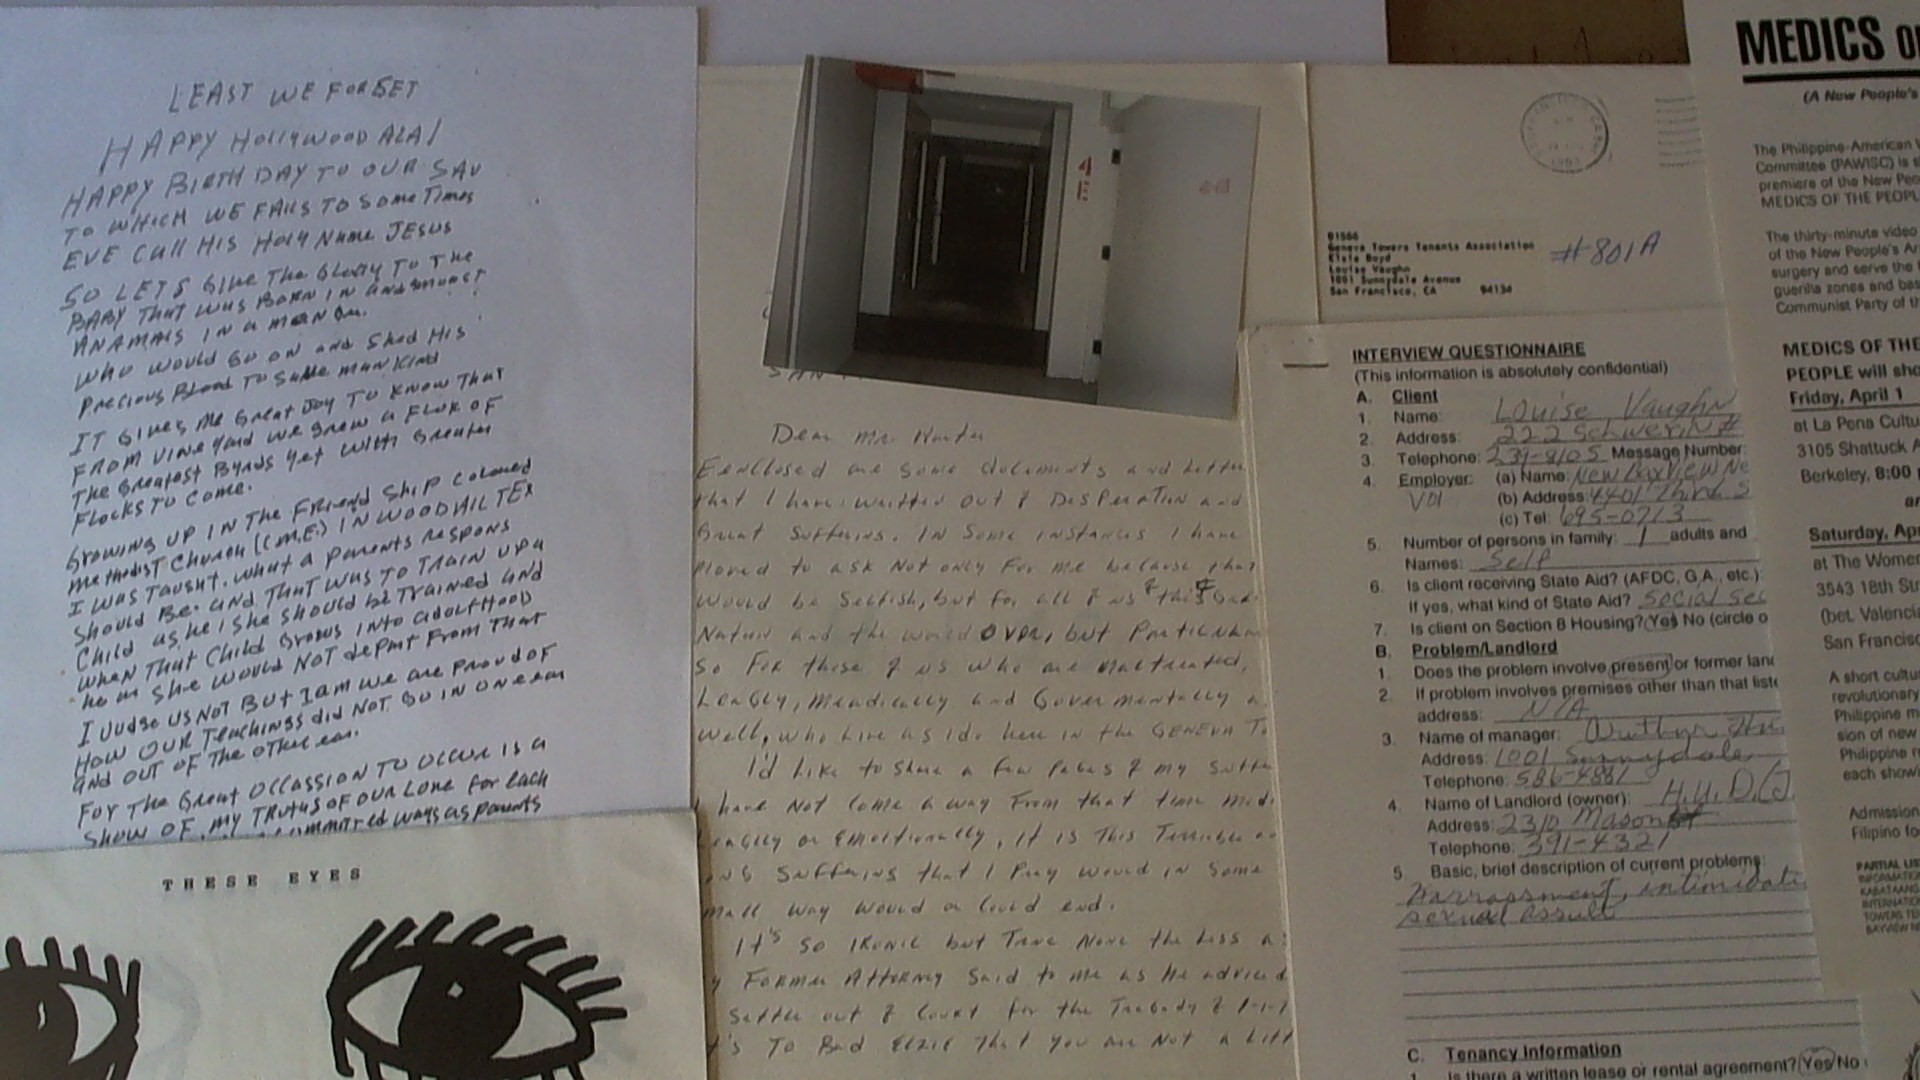 LEAST WE FORGET
HAPPY HOLLYWOOD ALA!
HAPPY BIRTHDAY TO OUR SAV
TO WHICH WE FAILS TO SOMETIMES
EVE CALL HIS HOLY NAME JESUS
SO LETS GIVE THE GLORY TO THE
BABY THAT WAS BORN IN
ANAMMIS IN A
WHO WOULD GO ON AND SHED HIS
PRECIOUS BLOOD TO MAN KIND
IT GIVES ME GREAT JOY TO KNOW THAT
FROM VINE YARD WE GROW A FLOK OF
THE GREATEST BYRDS YET WITH GREATER
FLOCKS TO COME.
GROWING UP IN THE FRIEND SHIP COLORED
METHODIST CHURCH (C.M.E.) IN WOODAIL TEX
I WAS TAUGHT, WHAT A PARENTS RESPONS
SHOULD BE. AND THAT WAS TO TRAIN UP A
CHILD AS HE/SHE SHOULD BE TRAINED AND
WHEN THAT CHILD GROWS INTO ADULTHOOD
HE OR SHE WOULD NOT DEPART FROM THAT
I JUDGE US NOT BUT I AM WE ARE PROUD OF
HOW OUR TEACHINGS DID NOT GO IN ONE EAR
AND OUT OF THE OTHER EAR.
FOR THE GREAT OCCASSION TO OCCUR IS A
SHOW OF MY TRUTHS OF OUR LOVE FOR EACH
COMMITTED WAYS AS PARENTS
THESE EYES
4
E
Dear Mr.
Eenclosed are some documents and Letter
that I have written out of Desperation and
Great Suffering. In Some instances I have
to ask Not only For me because that
would be Selfish, but for all of us
Nation and the world over, but
So For those of us who are maltreated,
and Governmentally
Well, who Live here in the GENEVA T
I'd Like to share a few pages of my
have Not Come a way From that time
or Emotionally, it is This Terrible
Suffering that I Pray would in Some
way would or could end.
It's so IRONIC but True None the Less
Former Attorney Said to me as he adviced
Settle out of Court for the Tragedy of 1-1-
's To Bad Elzie That you are Not a
01566
Geneva Towers Tenants Association
Elsie Boyd
Louise Vaughn
1001 Sunnydale Avenue
San Francisco, CA 94134
#801A
INTERVIEW QUESTIONNAIRE
(This information is absolutely confidential)
A. Client
1. Name: Louise Vaughn
2. Address: 222 Schwerin #
3. Telephone: 239-8105 Message Number:
4. Employer: (a) Name: New Bayview Ne
VOI (b) Address: 4401 Third S
(c) Tel: 695-0713
5. Number of persons in family: 1 adults and
Names: Self
6. Is client receiving State Aid? (AFDC, G.A., etc.)
If yes, what kind of State Aid? Social Sec
7. Is client on Section 8 Housing? Yes No (circle o
B. Problem/Landlord
1. Does the problem involve present or former lan
2. If problem involves premises other than that liste
address: N/A
3. Name of manager:
Address: 1001 Sunnydale
Telephone: 586-4881
4. Name of Landlord (owner): H.U.D.
Address: 2310 Mason St
Telephone: 391-4321
5. Basic, brief description of current problems:
Harrassment, intimidati
sexual assult
C. Tenancy Information
1. Is there a written lease or rental agreement? Yes No
MEDICS O
(A New People's
The Philippine-American
Committee (PAWISC) is s
premiere of the New Peo
MEDICS OF THE PEOPL
The thirty-minute video
of the New People's Ar
surgery and serve the
guerilla zones and bas
Communist Party of th
MEDICS OF THE
PEOPLE will sho
Friday, April 1
at La Pena Cultu
3105 Shattuck A
Berkeley, 8:00
Saturday, Apr
at The Women
3543 18th Str
(bet. Valencia
San Francisc
A short cultu
revolutionary
Philippine m
sion of new
Philippine r
each showi
Admission
Filipino fo
PARTIAL LIS
INFORMATION
KABATAANG
INTERNATIO
TOWERS TE
BAYVIEW